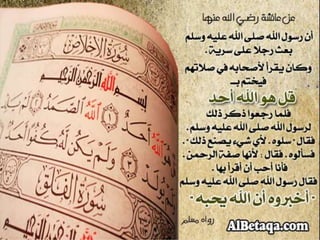 عن عائشة رضي الله عنها
أن رسول الله صلى الله عليه وسلم
بعث رجلا على سرية،
وكان يقرأ لأصحابه في صلاتهم
فيختم بـ
قل هو الله أحد
فلما رجعوا ذكر ذلك
لرسول الله صلى الله عليه وسلم،
فقال "سلوه، لأي شيء يصنع ذلك"،
فسألوه، فقال: لأنها صفة الرحمن،
فأنا أحب أن أقرأ بها.
فقال رسول الله صلى الله عليه وسلم
"أخبروه أن الله يحبه"
رواه مسلم
AlBetaqa.com
سورة الإخلاص
بسم الله الرحمن الرحيم
أحد
الله الصمد
لم يلد
ولم يكن له كفوا أحد
سورة الفلق